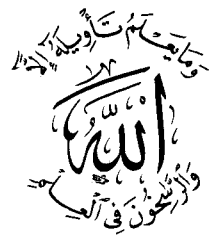 وَمَا يَعْلَمُ تَأْوِيلَهُ إِلَّا
اللَّهُ
وَالرَّاسِخُونَ فِي الْعِلْمِ